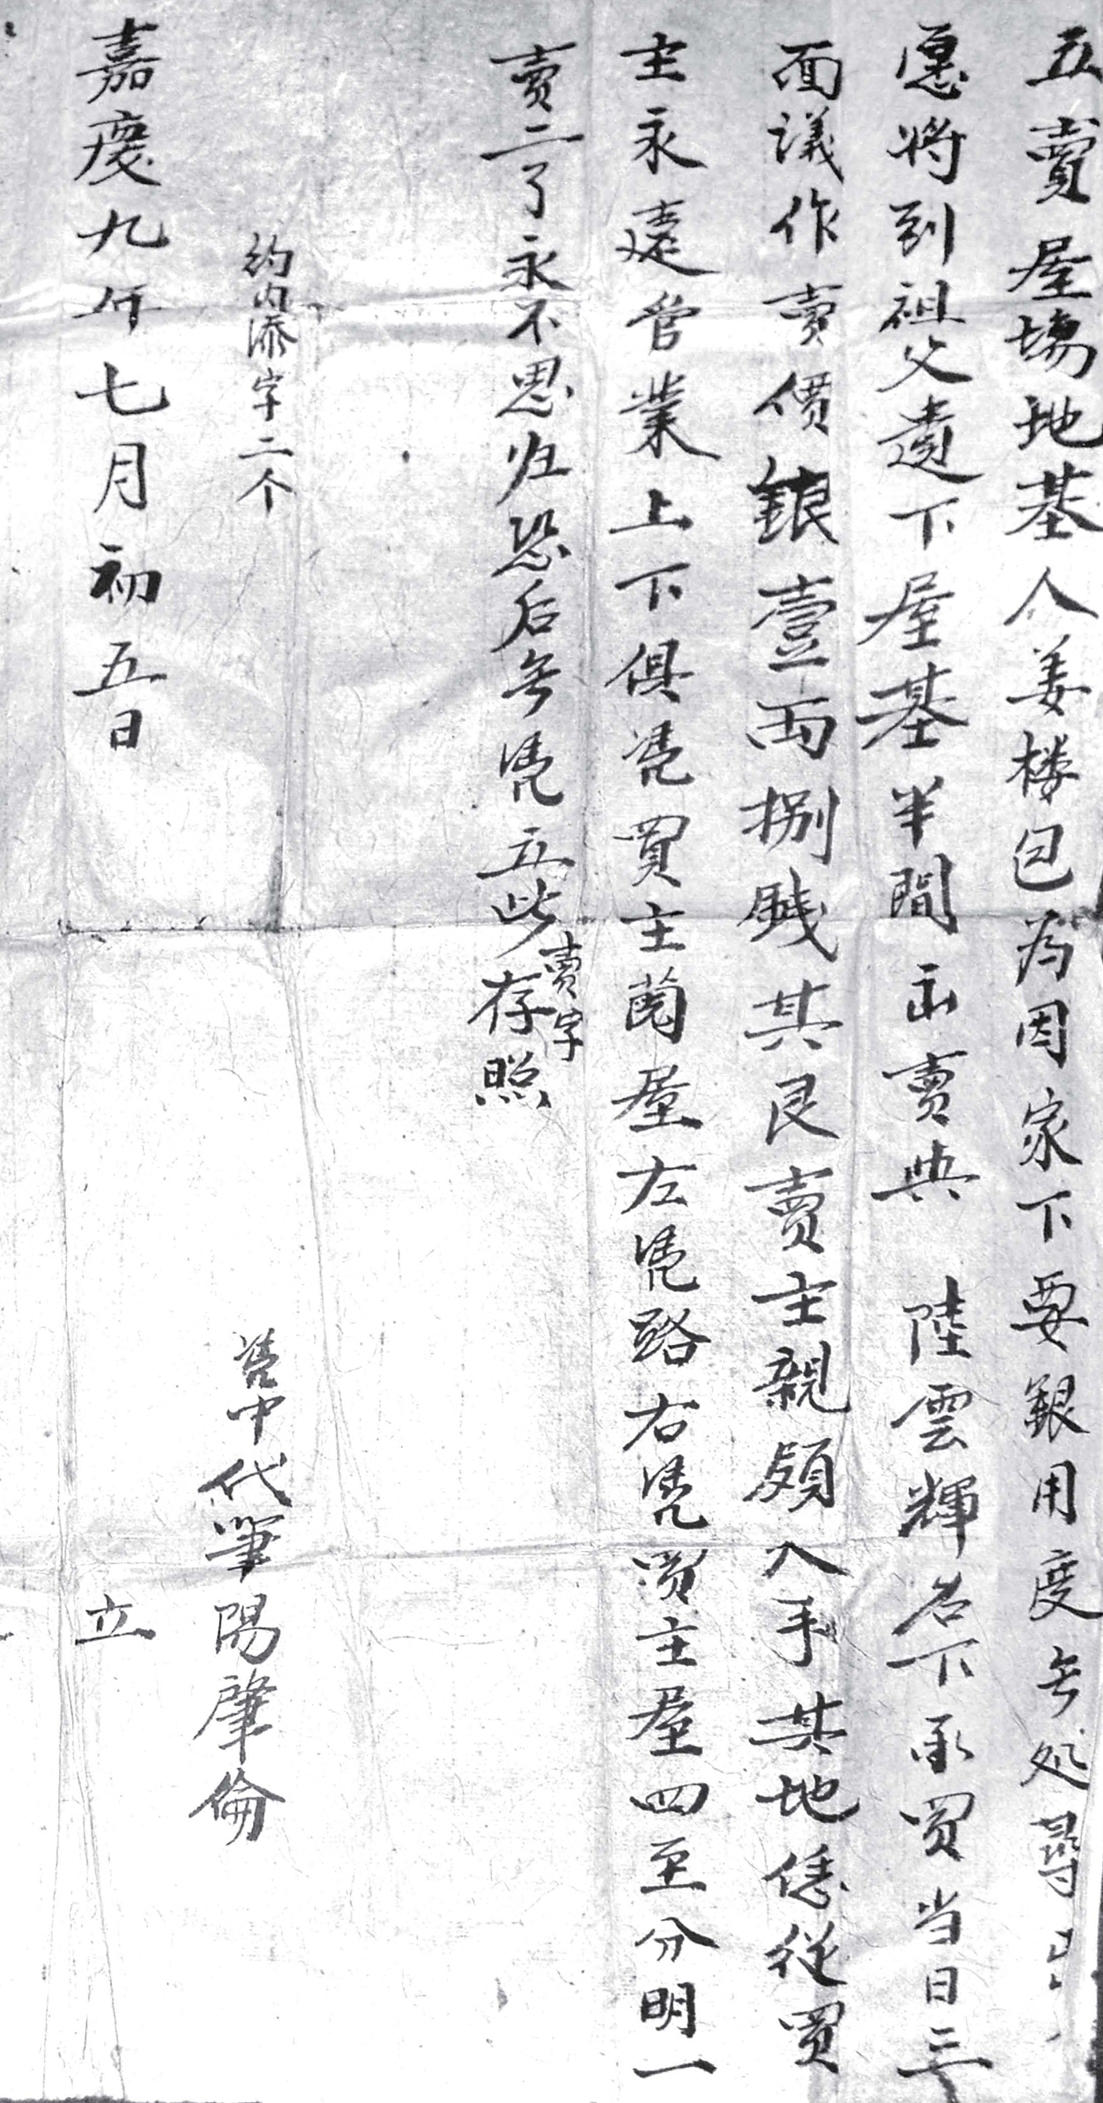 立賣屋場地基人姜楼包為因家下要銀用度無处尋出
愿将到祖父遺下屋基半間出賣與 陸雲輝名下承買当日三
面議作賣價銀壹两捌錢其艮賣主親領入手其地恁從買
主永遠管業上下俱凭買主菌屋左凭路右凭買主屋四至分明一
賣二了永不思归恐后無凭立此賣字存照
約内添字二个
凭中代筆陽肇倫
嘉慶九年七月初五日 立